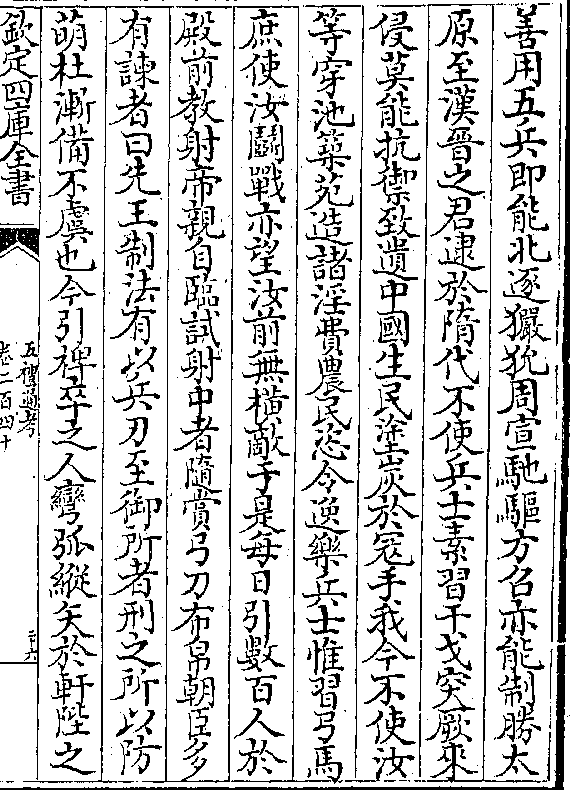 善用五兵即能北逐玁狁周宣馳驅方召亦能制勝太
原至漢晉之君逮於隋代不使兵士素習干戈突厥來
侵莫能抗禦致遺中國生民塗炭於寇手我今不使汝
等穿池築苑造諸淫費農民恣令逸樂兵士惟習弓馬
庶使汝鬭戰亦望汝前無橫敵于是每日引數百人於
殿前教射帝親自臨試射中者隨賞弓刀布帛朝臣多
有諫者曰先王制法有以兵刃至御所者刑之所以防
萌杜漸備不虞也今引裨卒之人彎弧縱矢於軒陛之
欽定四庫全書
五禮通考
卷二百四十
二十六